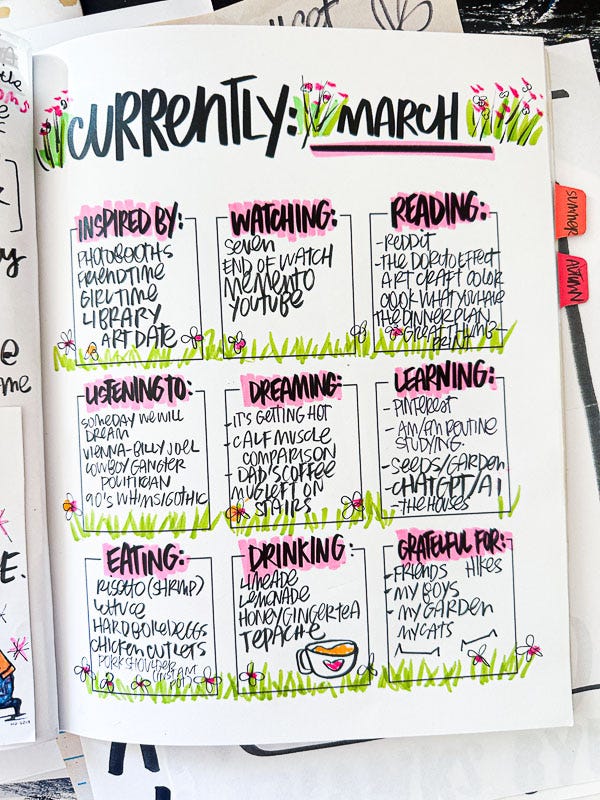 CURRENTLY: MARCH
INSPIRED BY:
PHOTOBOOTHS
FRIENDTIME
GIRLTIME
LIBRARY
ART DATE
WATCHING:
SEVEN
END OF WATCH
MEMENTO
YOUTUBE
READING:
-REDDIT
-THE DORITO EFFECT
ART CRAFT COLOR
COOK WHAT YOU HAVE
THE DINNER PLAN
GREAT THUMB-
PRINT
LISTENING TO:
SOMEDAY WE WILL
DREAM
VIENNA-BILLY JOEL
COWBOY GANGTER
POLITICIAN
90'S WHIMSIGOTHIC
DREAMING:
-IT'S GETTING HOT
-CALF MUSCLE
COMPARISON
-DAD'S COFFEE
MUG LEFT ON
STAIRS
LEARNING:
-PINTEREST
-AM/PM ROUTINE
STUDYING.
-SEEDS/GARDEN
-CHATGPT/AI
-THE HOUSES
EATING:
RISOTTO (SHRIMP)
LETTUCE
HARD BOILED EGGS
CHICKEN CUTLETS
PORK SHOULDER
(INSTANT
POT)
DRINKING:
LIMEADE
LEMONADE
HONEY GINGER TEA
TEPACHE
GRATEFUL FOR:
-FRIENDS HIKES
-MY BOYS
-MY GARDEN
MY CATS
SUMMER
AUTUMN